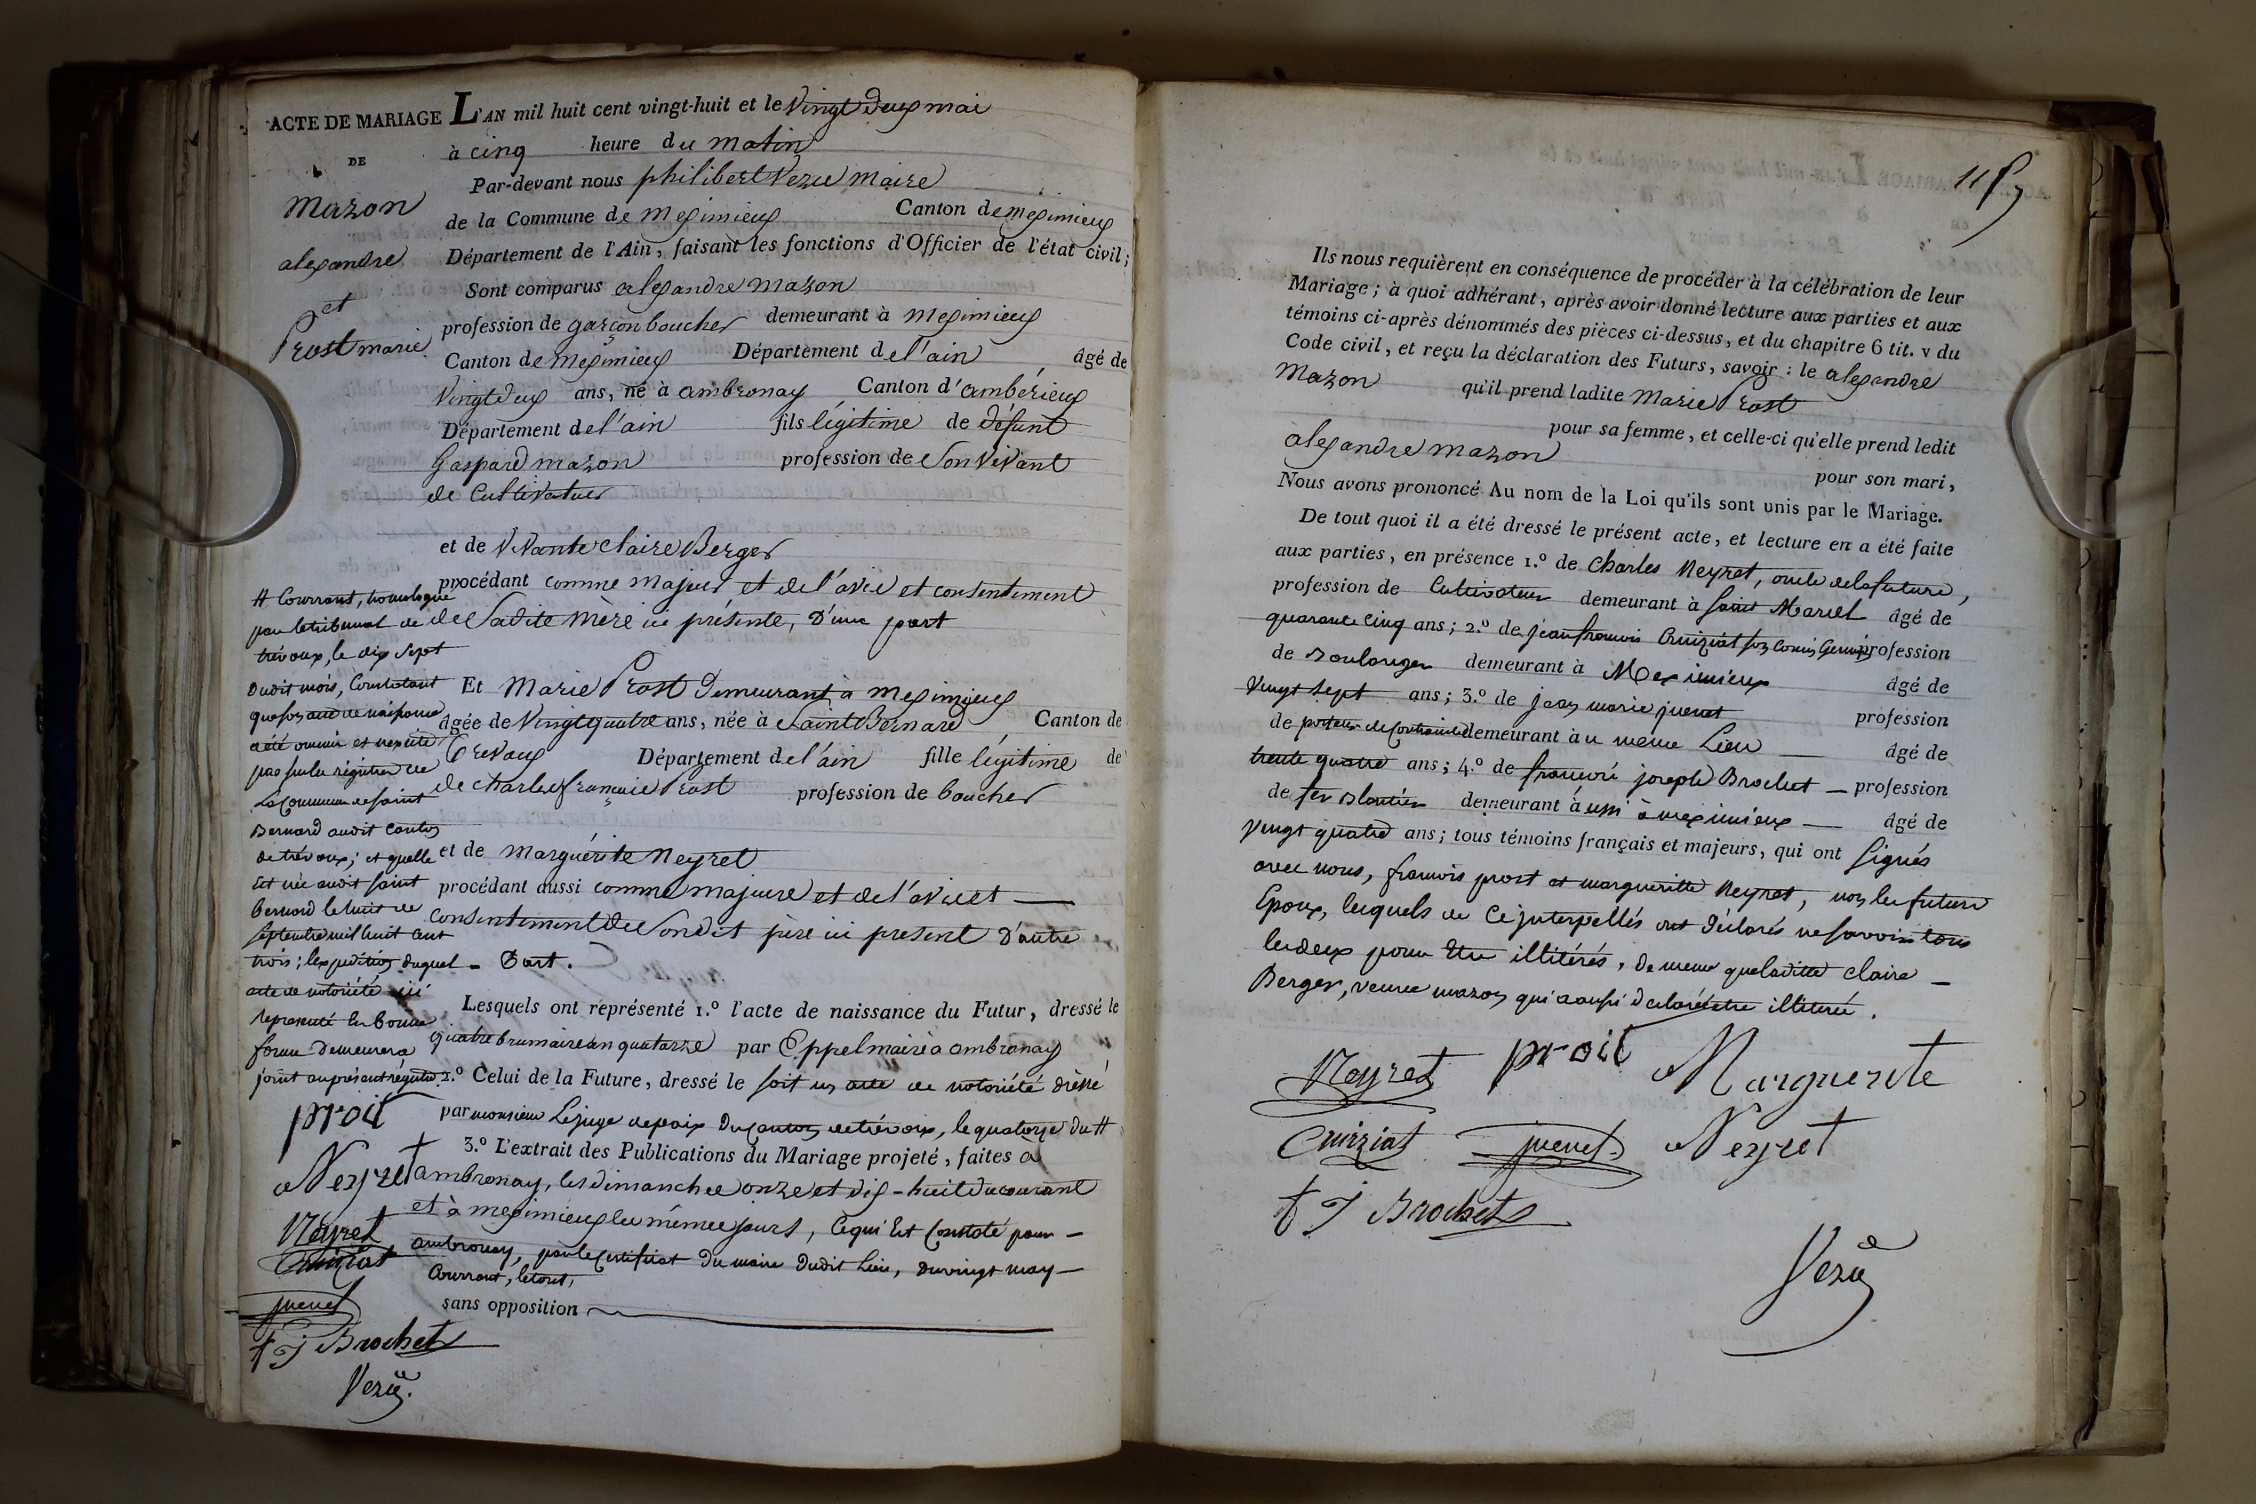 ACTE DE MARIAGE
DE
Mazon
alexandre
et
Prost marie
L'AN mil huit cent vingt-huit et le Vingt deux mai
à cinq heure du matin
Par-devant nous philibert Vezu Maire
de la Commune de meximieux Canton de meximieux
Département de l'Ain, faisant les fonctions d'Officier de l'état civil;
Sont comparus alexandre mazon
profession de garçon boucher demeurant à meximieux
Canton de meximieux Département de l'ain âgé de
Vingt deux ans, né à ambronay Canton d'ambérieux
Département de l'ain fils légitime de défunt
Gaspard mazon profession de Son Vivant
de Cultivateur
et de Vivante claire Berger
procédant comme majeur et de l'avis et consentement
de Sadite mère ici présente, D'une part
Et Marie Prost Demeurant à meximieux
âgée de Vingt quatre ans, née à Saint Bernard Canton de
Trevoux Département de l'ain fille légitime de
de charles françois Prost profession de boucher
et de marguérite Neyret
procédant aussi comme majeure et de l'avis et —
consentement de Sondit père ici present D'autre
- Part.
Lesquels ont représenté 1.° l'acte de naissance du Futur, dressé le
quatre brumaire an quatorze par Eppel maire à ambronay
2.° Celui de la Future, dressé le soit un acte de notoriété dressé
par monsieur Le juge de paix Du Canton de trévoux, le quatorze du #
3.° L'extrait des Publications du Mariage projeté, faites à
ambronay, les dimanches onze et dix-huit du courant
et à meximieux les mêmes jours, Ce qui Est Constaté pour —
ambronay, par le Certificat Du maire Dudit Lieu, du vingt may —
Courrant, le tout,
sans opposition
# Courrant, homologué
par le tribunal de
trévoux, le dix sept
Dudit mois, Constatant
que son acte de naissance
a été omis et n'existe
pas sur les régistres de
La Commune de Saint
Bernard audit Canton
de trévoux; et quelle
Est née audit Saint
Bernard le huit de
Septembre mil huit cent
trois; l'expédition duquel
acte de notoriété ici
représenté En bonne
forme Demeurera
joint au présent régistre
prost
Neyret
Neyret
Cuiziat
juenet
f J Brochet
Vezu.
115
Ils nous requièrent en conséquence de procéder à la célébration de leur
Mariage; à quoi adhérant, après avoir donné lecture aux parties et aux
témoins ci-après dénommés des pièces ci-dessus, et du chapitre 6 tit. v du
Code civil, et reçu la déclaration des Futurs, savoir: le alexandre
Mazon qu'il prend ladite Marie Prost
pour sa femme, et celle-ci qu'elle prend ledit
alexandre mazon pour son mari,
Nous avons prononcé Au nom de la Loi qu'ils sont unis par le Mariage.
De tout quoi il a été dressé le présent acte, et lecture en a été faite
aux parties, en présence 1.° de Charles Neyret, oncle de la future,
profession de Cultivateur demeurant à Saint Marcel âgé de
quarante cinq ans; 2.° de jean françois Cuiziat son Cousin Germain profession
de Boulanger demeurant à Meximieux âgé de
Vingt Sept ans; 3.° de jean marie juenet profession
de porteur de Contrainte demeurant à u même Lieu — âgé de
trente quatre ans; 4.° de françois joseph Brochet — profession
de fer blantier demeurant à ussi à meximieux — âgé de
vingt quatre ans; tous témoins français et majeurs, qui ont signés
avec nous, françois prost et margueritte Neyret, non les futurs
Epoux, lesquels de ce jnterpellés ont déclarés ne savoir tous
les deux pour Etre illitérés, de meme que laditte claire —
Berger, veuve mazon qui a aussi déclaré être illitérée.
Neyret prost Marguerite
Cuiziat juenet Neyret
f J Brochet
Vezu